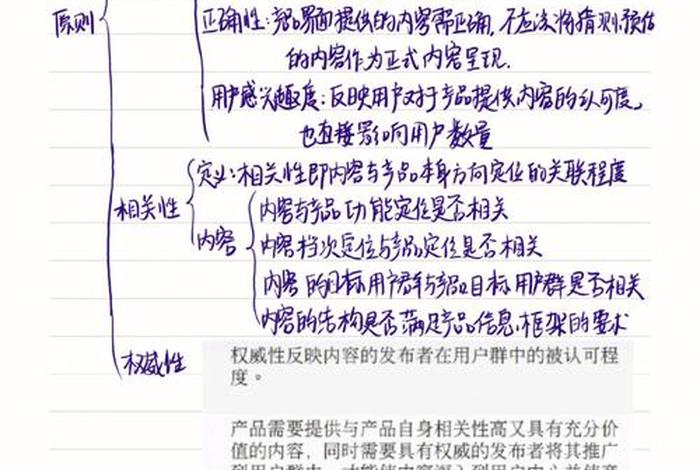 原则
正确性:产品界面提供的内容需正确,不应该将猜测、预估
的内容作为正式内容呈现.
用户感兴趣度:反映用户对于产品提供内容的认可度,
也直接影响用户数量
相关性
定义:相关性即内容与产品本身方向定位的关联程度
内容
内容与产品功能定位是否相关
内容档次定位与产品定位是否相关
内容的目标用户群与产品目标用户群是否相关
内容的结构是否满足产品信息框架的要求
权威性
权威性反映内容的发布者在用户群中的被认可程
度。
产品需要提供与产品自身相关性高又具有充分价
值的内容,同时需要具有权威的发布者将其推广